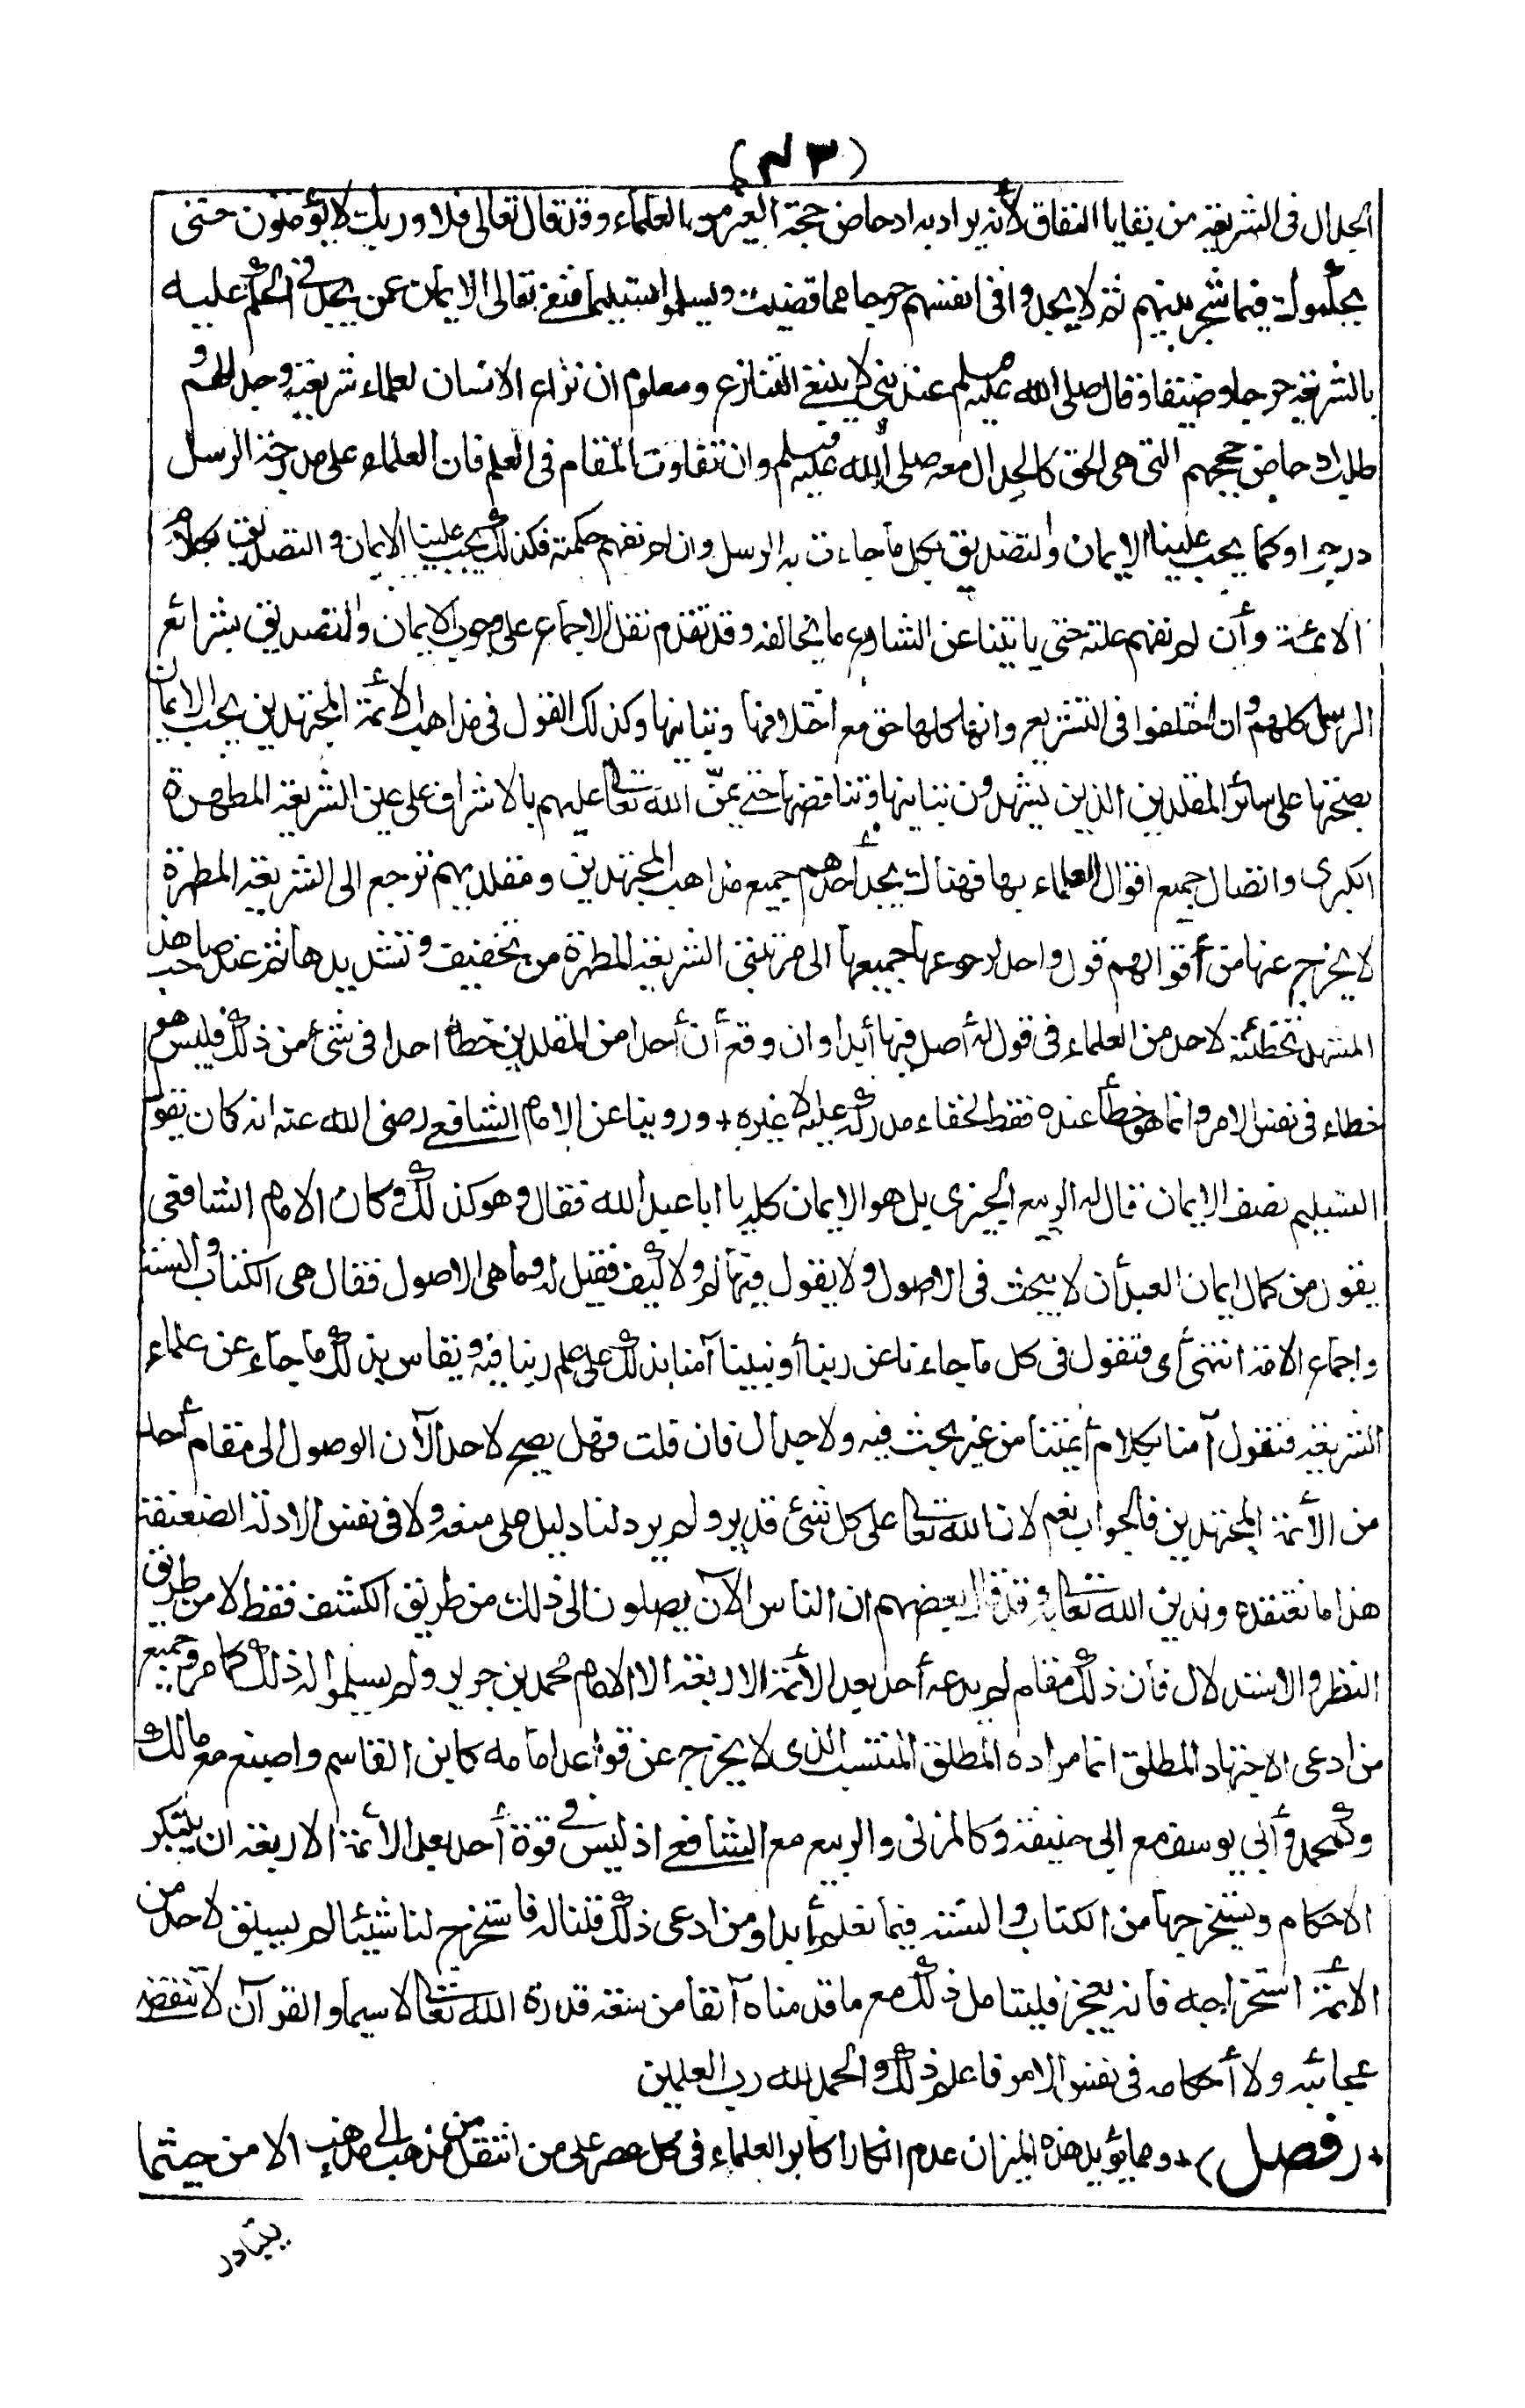 (٤٣)
الجدال فى الشريعة من بقايا النفاق لأنه يراد به ادحاض حجة الغير من العلماء وقد قال تعالى فلا وربك لا يؤمنون حتى
يحكموك فيما شجر بينهم ثم لا يجدوا فى انفسهم حرجا مما قضيت ويسلموا تسليما فنفى تعالى الايمان عمن يجد فى الحكم عليه
بالشريعة حرجا وضيقا وقال صلى الله عليه وسلم عند نبى لا ينبغى التنازع ومعلوم ان نزاع الانسان لعلماء شريعته وجدالهم
وطلب ادحاض حججهم التى هى الحق كالجدال معه صلى الله عليه وسلم وان تفاوت المقام فى العلم فان العلماء على مدرجة الرسل
درجوا وكما يجب علينا الايمان والتصديق بكل ما جاءت به الرسل وان لم نفهم حكمته فكذلك يجب علينا الايمان والتصديق بكلام
الائمة وأن لم نفهم علته حتى ياتينا عن الشارع ما يخالفه وقد تقدم نقل الاجماع على وجوب الايمان والتصديق بشرائع
الرسل كلهم وان اختلفوا فى التشريع وانها كلها حق مع اختلافها وتباينها وكذلك القول فى مذاهب الأئمة المجتهدين يجب الايمان
بصحتها على سائر المقلدين الذين يشهدون تباينها وتناقضها حتى يمنّ الله تعالى عليهم بالاشراف على عين الشريعة المطهرة
الكبرى واتصال جميع اقوال العلماء بها فهناك يجد أحدهم جميع مذاهب المجتهدين ومقلديهم ترجع الى الشريعة المطهرة
لا يخرج عنها من أقوالهم قول واحد لرجوعها جميعها الى مرتبتى الشريعة المطهرة من تخفيف وتشديد ها ثم عند صاحب هذا
المشهد تخطئة لاحد من العلماء فى قول له أصل فيها أبدا وان وقع أن أحدا من المقلدين خطأ احدا فى شئ من ذلك فليس هو
خطاء فى نفس الامر وانما هو خطأ عنده فقط لخفاء مدركه عليه لا غيره + وروينا عن الامام الشافعى رضى الله عنه انه كان يقول
التسليم نصف الايمان قال له الربيع الجيزى بل هو الايمان كله يا ابا عبد الله فقال وهو كذلك وكان الامام الشافعى
يقول من كمال ايمان العبد أن لا يبحث فى الاصول ولا يقول فيها لم ولا كيف فقيل له وما هى الاصول فقال هى الكتاب والسنة
واجماع الامة انتهى أى فنقول فى كل ما جاءنا عن ربنا أو نبينا آمنا بذلك على علم ربنا فيه ويقاس بذلك ما جاء عن علماء
الشريعة فنقول آمنا بكلام أئمتنا من غير بحث فيه ولا جدال فان قلت فهل يصح لاحد الآن الوصول الى مقام أحد
من الأئمة المجتهدين فالجواب نعم لان الله تعالى على كل شئ قدير ولم يرد لنا دليل على منعه ولا فى نفس الادلة الضعيفة
هذا ما نعتقده وندين الله تعالى به وقد قال بعضهم ان الناس الآن يصلون الى ذلك من طريق الكشف فقط لا من طريق
النظر والاستدلال فان ذلك مقام لم يدعه أحد بعد الأئمة الاربعة الا الامام محمد بن جرير ولم يسلموا له ذلك كما مر وجميع
من ادعى الاجتهاد المطلق انما مراده المطلق المنتسب الذى لا يخرج عن قواعد امامه كابن القاسم واصبغ مع مالك
وكمحمد وأبى يوسف مع ابى حنيفة وكالمزنى والربيع مع الشافعى اذ ليس فى قوة أحد بعد الأئمة الاربعة ان يبتكر
الاحكام ويستخرجها من الكتاب والسنة فيما نعلم أبدا ومن ادعى ذلك قلنا له فاستخرج لنا شيئا لم يسبق لاحد من
الائمة استخراجه فانه يعجز فليتامل ذلك مع ما قدمناه آنفا من سعة قدرة الله تعالى لا سيما والقرآن لا تنقضى
عجائبه ولا أحكامه فى نفس الامر فاعلم ذلك والحمد لله رب العلمين
+(فصل)+ ومما يؤيد هذه الميزان عدم انكار اكابر العلماء فى كل عصر على من انتقل من مذهب الى مذهب الا من حيث ما
يتبادر